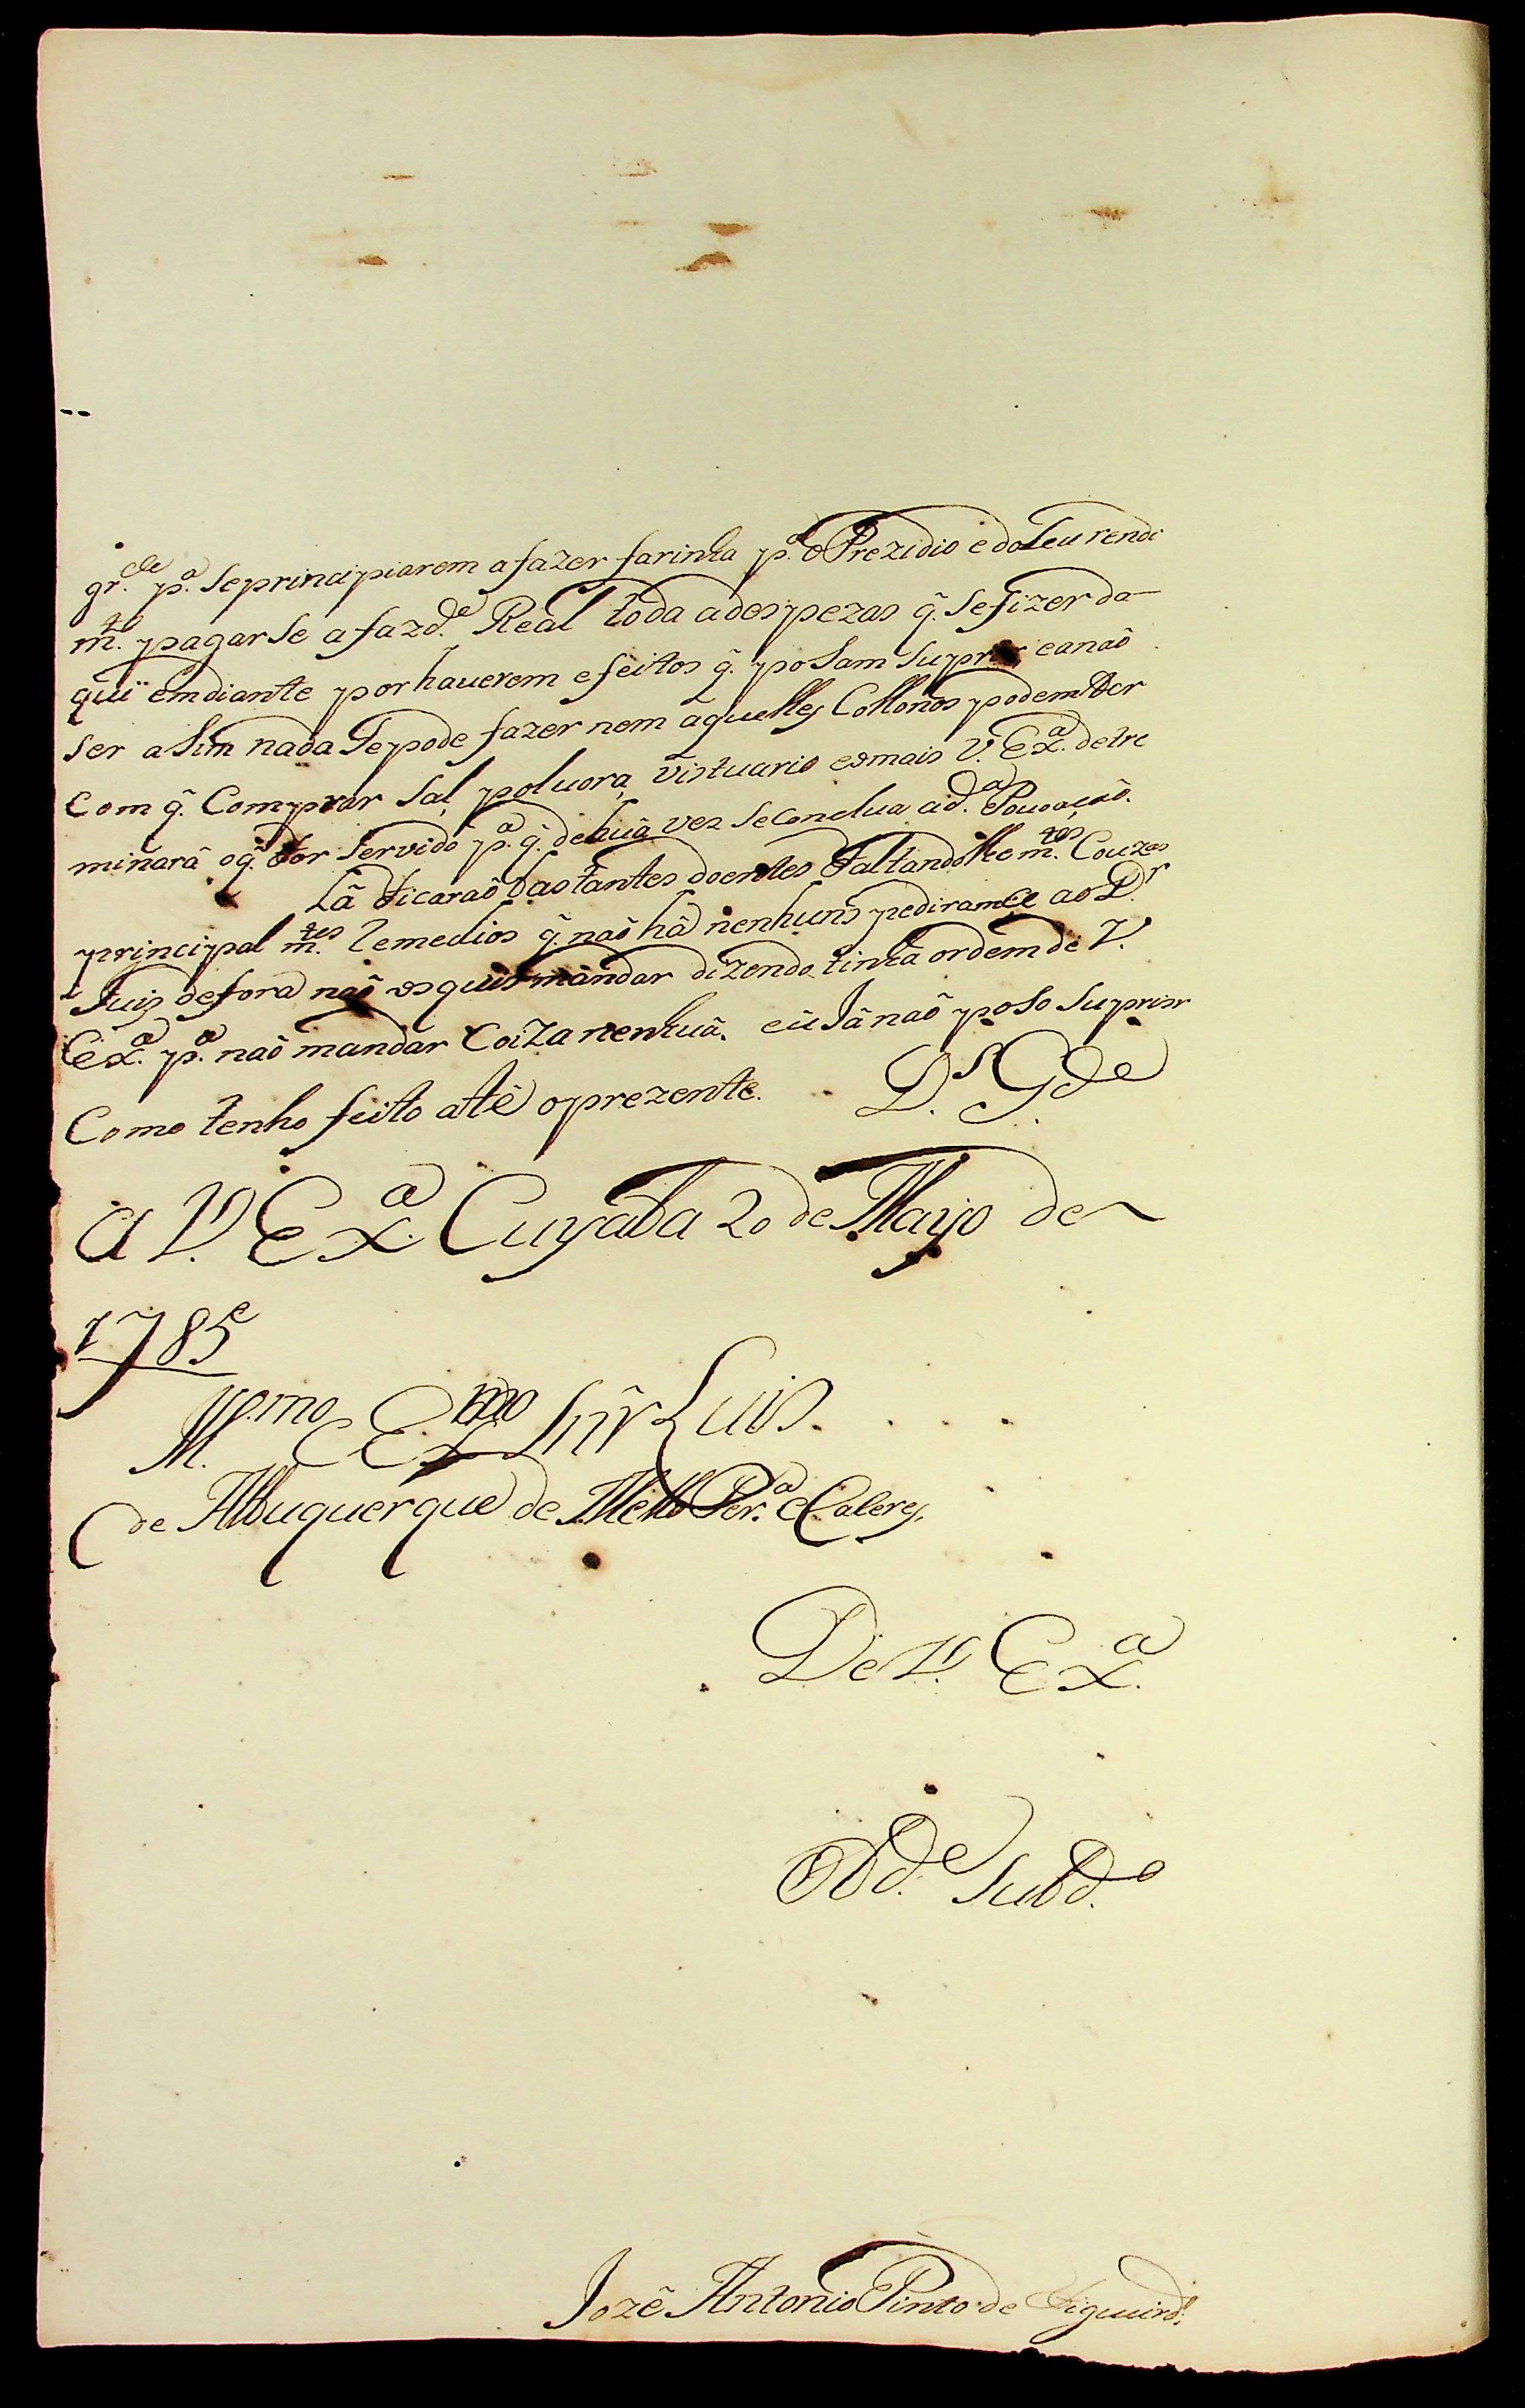 gr.de p.a se principiarem a fazer farinha p.a o Prezidio e do seu rendi
m.to pagarse a fazd.a Real toda a despezas q̃. se fizer da-
qui em diante por haverem efeitos q̃. posam suprir, e a naõ
ser asim nada se pode fazer nem aquelles Collonos podem ter
Com q̃. Comprar sal, poluora, vistuario e o mais V. Ex.a detre
minarâ o q̃. for servido p.a q̃. de huã vez se Conclua a d.a Povoaçaõ.
Lâ ficaraõ bastantes doentes faltandolhe m.tas Couzas
principal m.tes Remedios q̃. naõ hâ nenhuns pediramce ao D.r
Juis de fora naõ os quis mandar dizendo tinha ordem de V.
Ex.a p.a naõ mandar Coiza nenhuã. eu Jâ naõ poso suprir
Como tenho feito atê o prezente. D.s G.de
a V. Ex.a Cuyaba 20 de Mayo de
1785
Il.mo e Ex.mo Snr̃ Luis
de Albuquerque de Mello Per.a e Caleres,
De V. Ex.a
Obd.e Subd.o
Jozê Antonio Pinto de Figueird.o